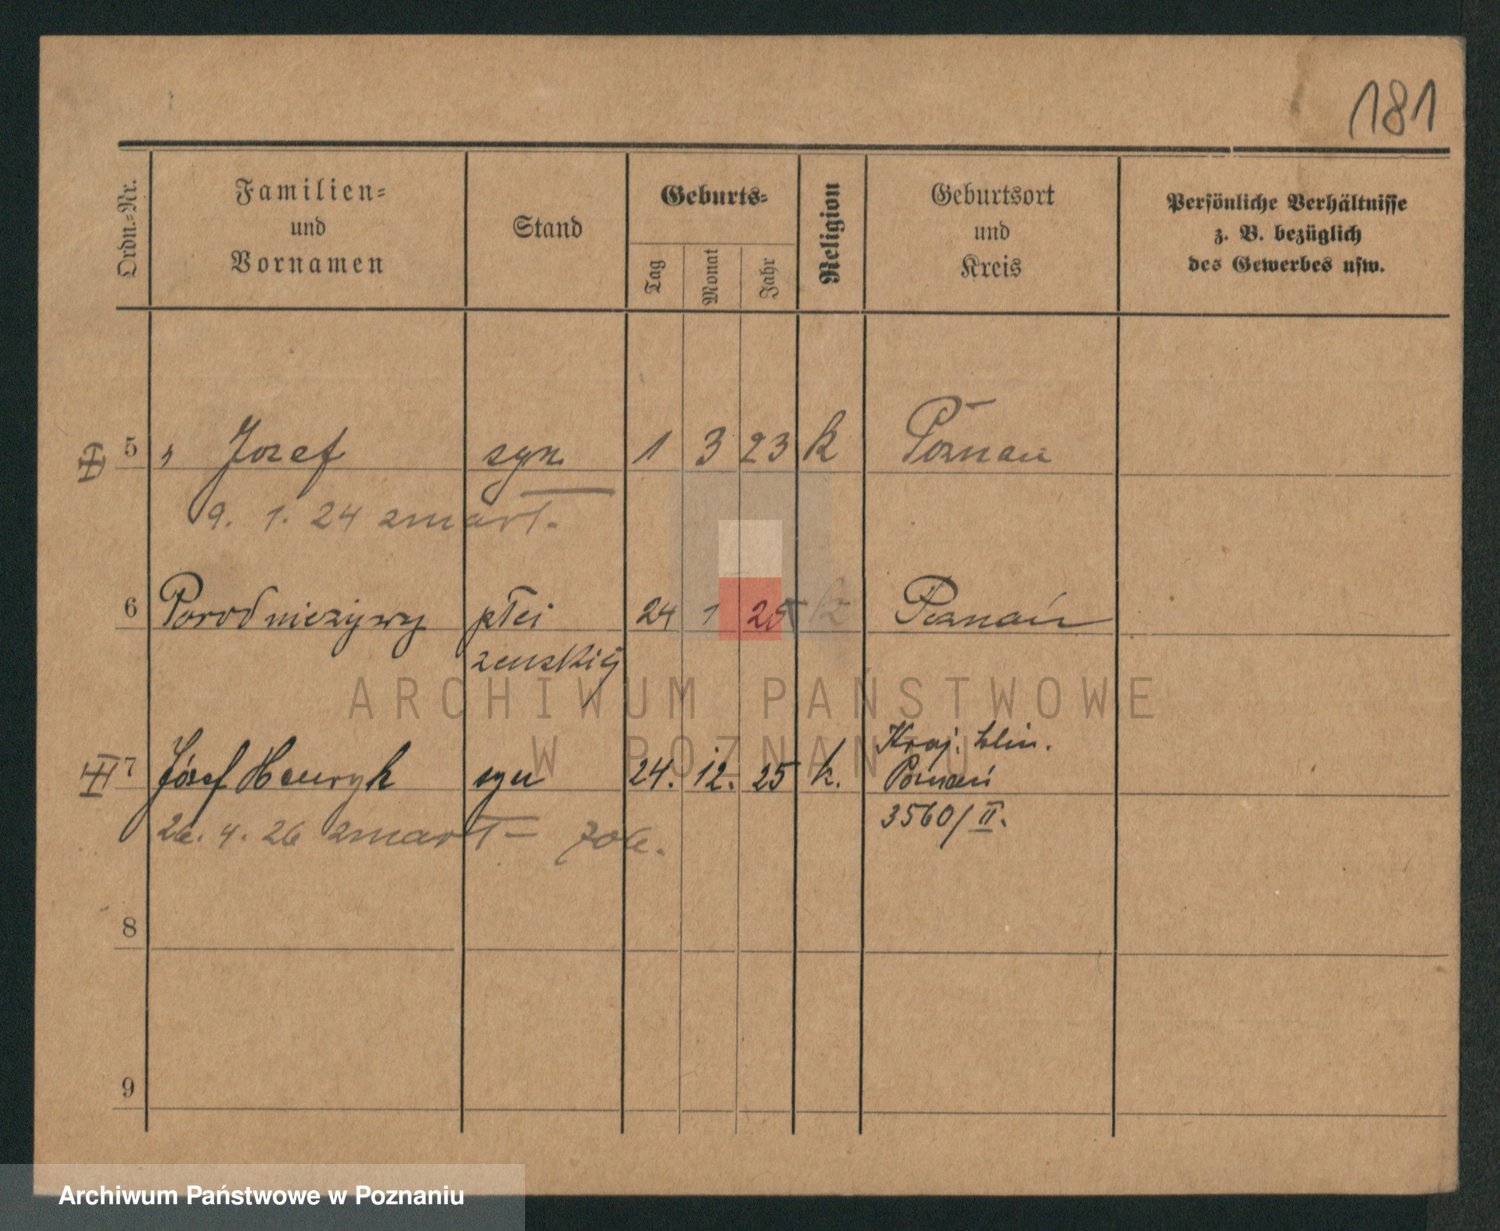 181
Ordn.-Nr.
Familien-
und
Vornamen
Stand
Geburts-
Tag
Monat
Jahr
Religion
Geburtsort
und
Kreis
Persönliche Verhältnisse
z. B. bezüglich
des Gewerbes usw.
5 " Jozef syn 1 3 23 k Poznań
9. 1. 24 zmarł.
6 Poród nieżywy płci 24 1 25 k Poznań
żeńskiej
Kraj. klin.
7 Józef Henryk syn 24. 12. 25 k. Poznań
3560/II.
26. 4. 26 zmarł-
8
9
ARCHIWUM PAŃSTWOWE
W POZNANIU
Archiwum Państwowe w Poznaniu